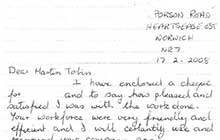 PORSON ROAD
HEARTSEASE EST
NORWICH
NR7
17.2.2008
Dear Martin Tobin
I have enclosed a cheque
for and to say how pleased and
satisfied I was with the work done.
Your workforce were very friendly and
efficient and I will certainly use and
your company again